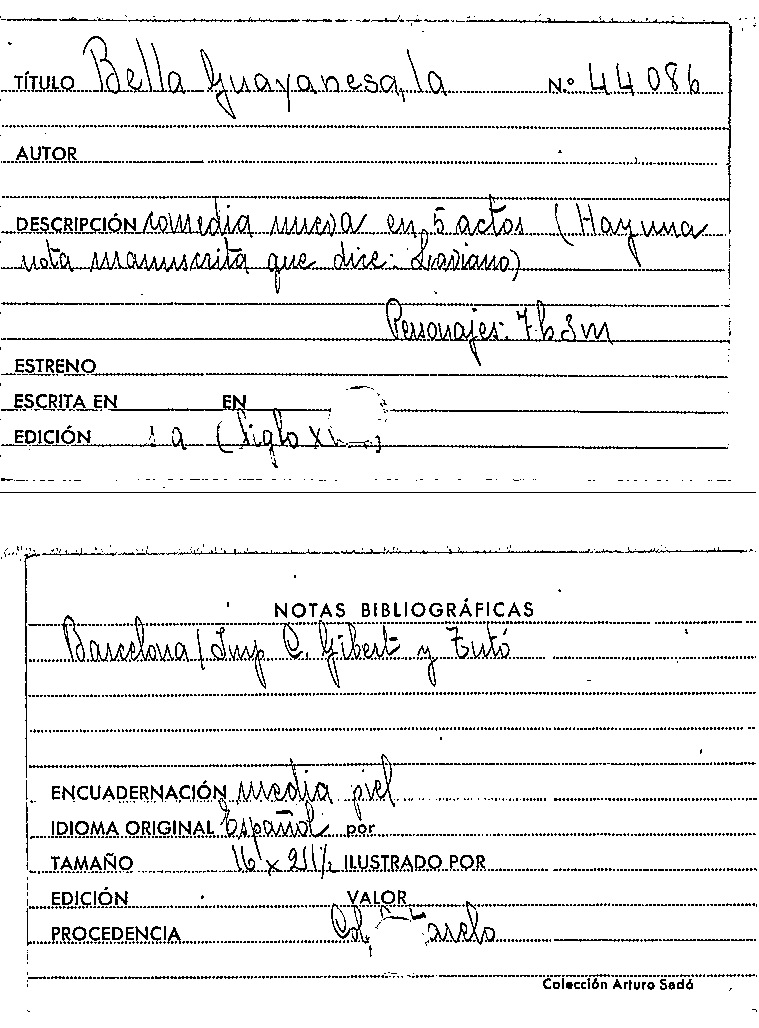 TÍTULO Bella Guayanesa, la N.º 44086
AUTOR
DESCRIPCIÓN comedia nueva en 5 actos (Hay una
nota manuscrita que dice: Laviano)
Personajes: 7h 3m
ESTRENO
ESCRITA EN EN
EDICIÓN (siglo
NOTAS BIBLIOGRÁFICAS
Barcelona / Imp C. Gibert y Tutó
ENCUADERNACIÓN media piel
IDIOMA ORIGINAL Español por
TAMAÑO 16 x 21 1/2 ILUSTRADO POR
EDICIÓN VALOR
PROCEDENCIA Col.
Colección Arturo Sedó